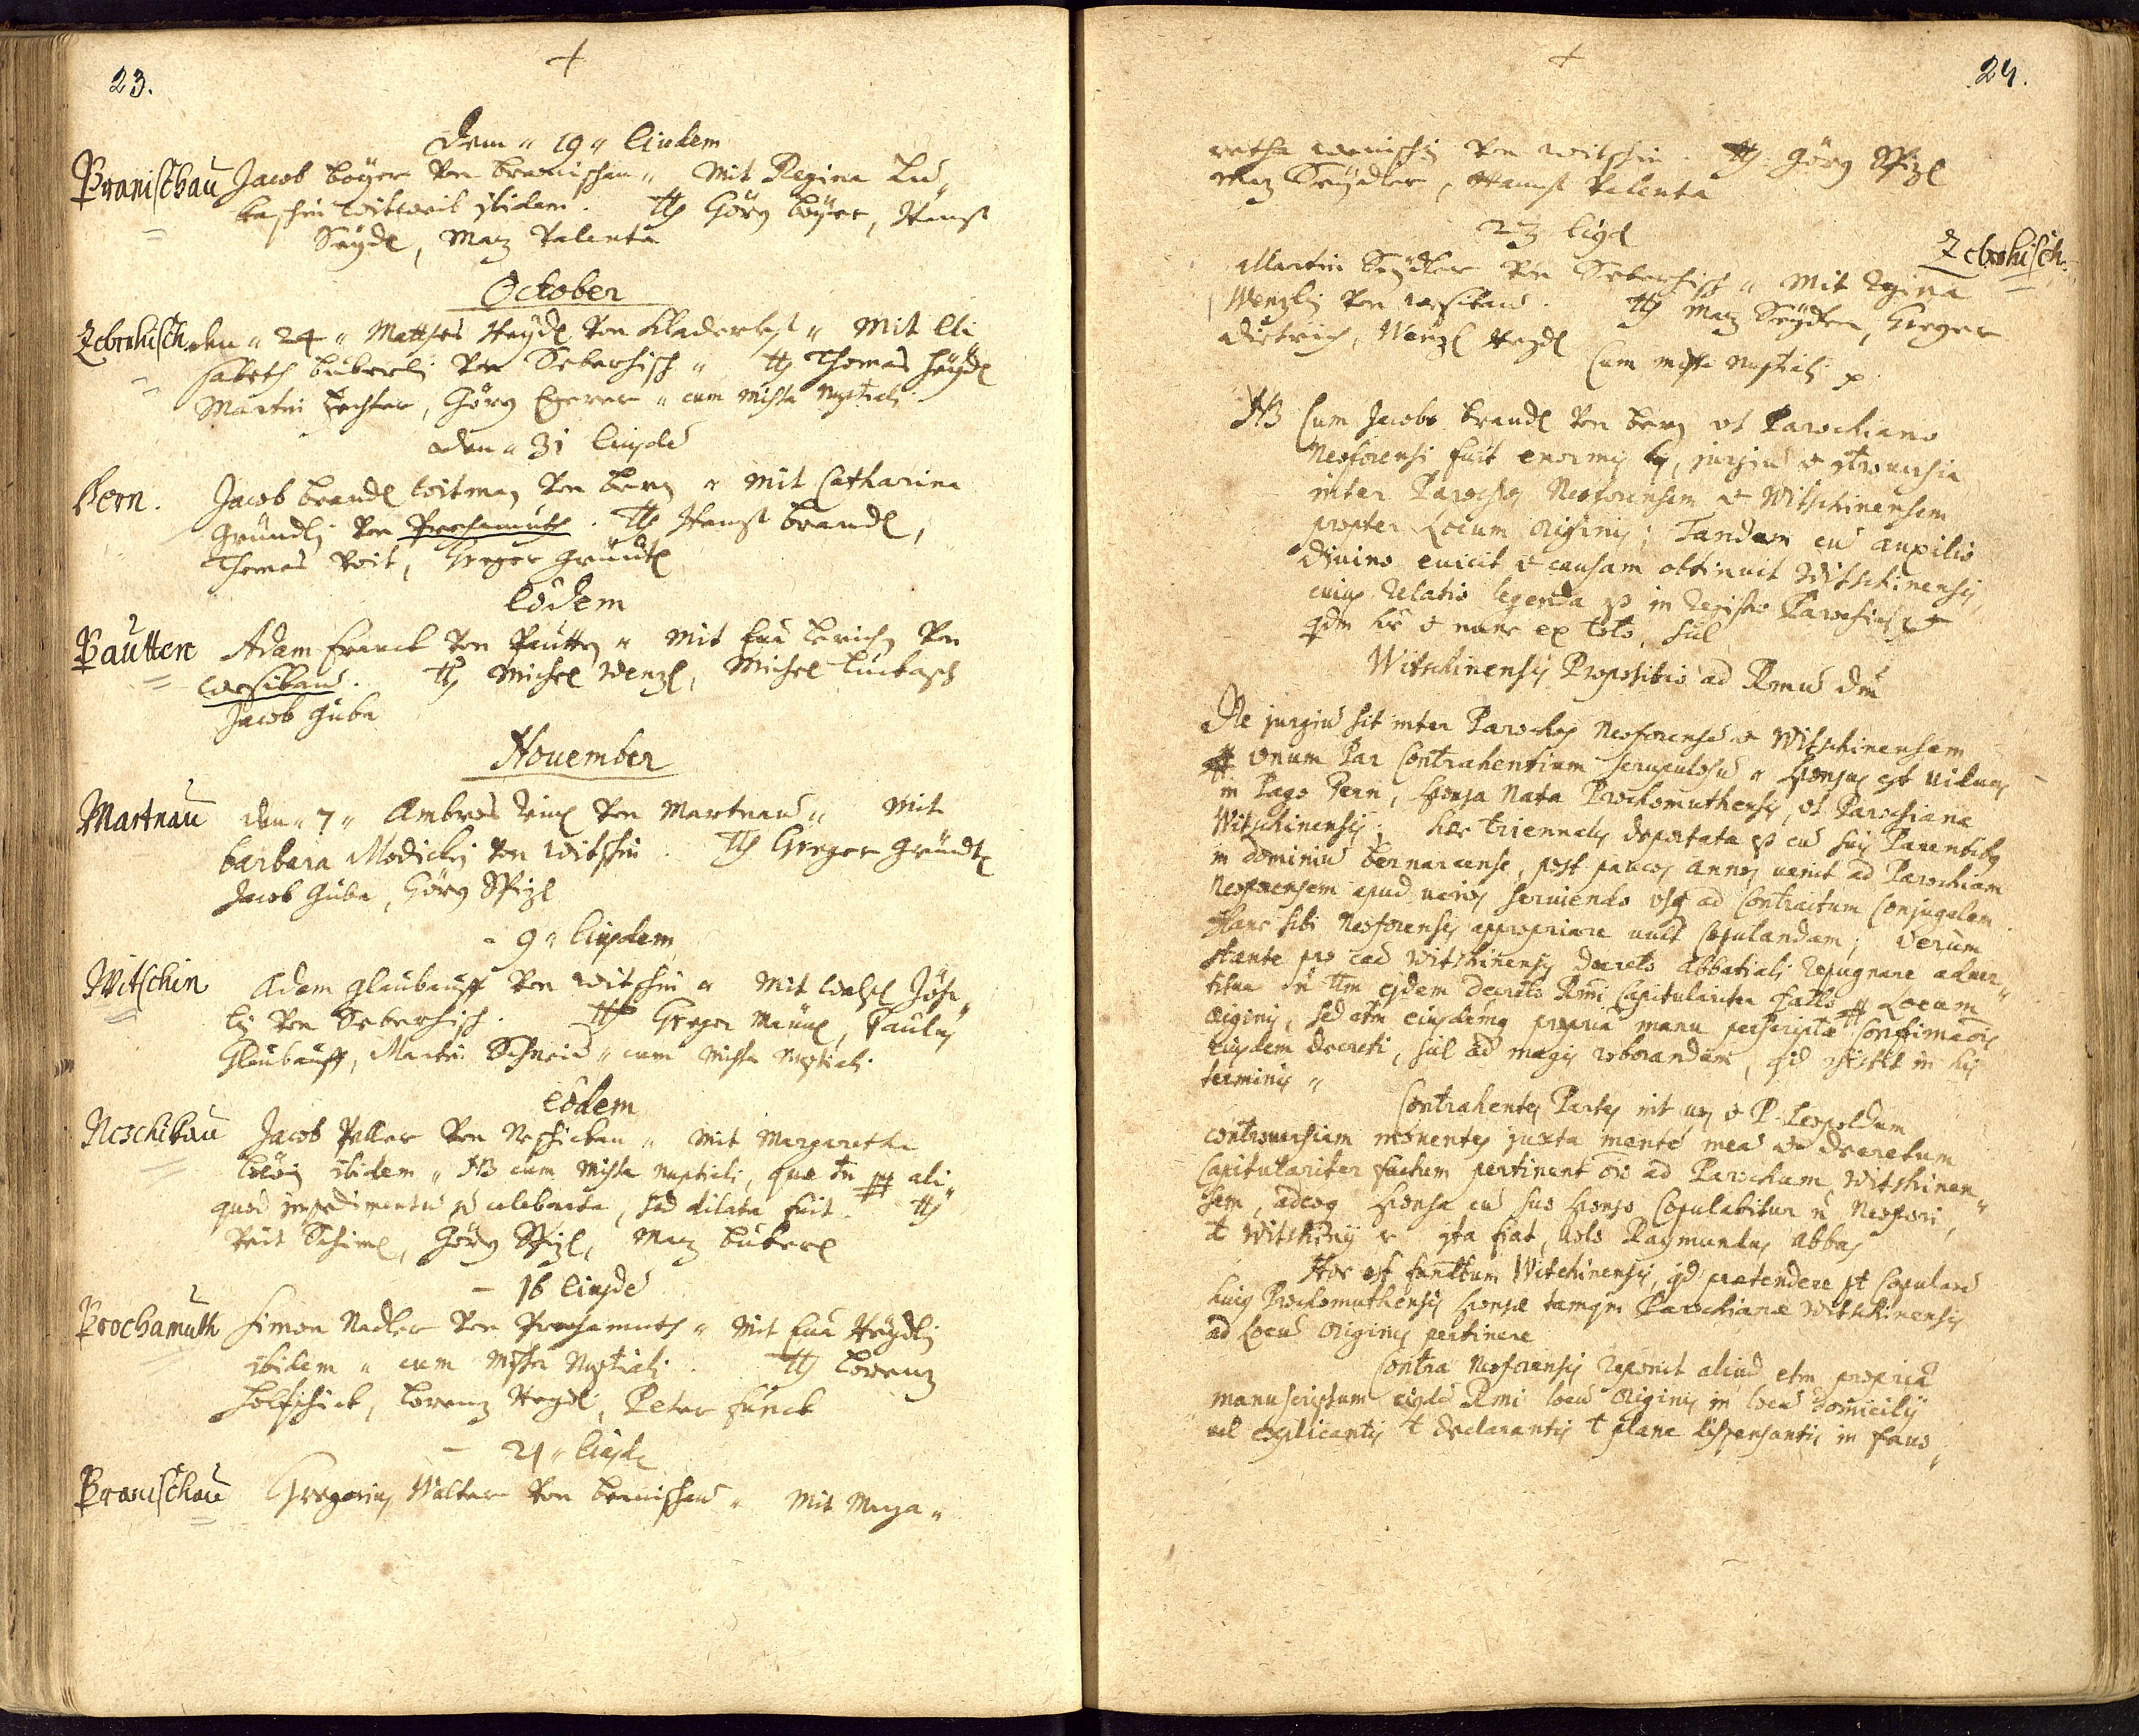 23.
Dem " 19 " Eiudem
Pranischau Jacob Böyer von Branischau " Mit Regina Lu„
kaschin witweib ibidem. Ttes Görg Böyer, Hanß
Seydl, Matz Valenta
October
Zebrohisch den " 24 " Matthes Heydl von Kladerlaß " Mit Eli„
sabeth Buberli von Seberhisch " Ttes Thomas Heydl
Martin Zechter, Görg Egerer " cum missa nuptiali
den " 31 Eiusdem
Pern. Jacob Brandl witman von Bern " mit Catharina
Gründlin von Prochamuth. Ttes Hanß Brandl,
Thomas Voit, Greger Gründl
Eodem
Pautten Adam Franck von Pautten " mit Eva Lerich von
Neschikau. Ttes Michel Wenzl, Michel Luckasch
Jacob Guba
November
Martnau den " 7 " Ambros von Martnau " Mit
Barbara Modicki von Witschin. Ttes Greger Gründl
Jacob Guba, Görg Spizl
" 9 " Eiusdem
Witschin Adam Glaubauff von Witschin " Mit
lin von Seberhisch. Ttes Greger Maünl, Paulus
Glaubauff, Martin Schneid " cum missa nuptiali.
eodem
Neschikau Jacob von Neschickau " mit Margaretha
ibidem " NB cum missa nuptiali, quae tn ppter ali„
quod impedimentu celebrata, sed dilata fuit. Ttes
Veit Schiml, Görg Spizl, Matz Buberl
– 16 Eiusde
Prochamuth Simon Nadler von Prochamuth " Mit Eva Heydlin
ibidem " cum Missa Nuptiali. Ttes Lorenz
Holtschick, Lorenz Heydl, Peter Funck
– 21 " Eiusde
Pranischau Gregorius Walter von Branischau " Mit Marga„
24.
retha von Witschin. Ttes. Görg Spizl
Matz Seydler, Hanß Valenta
23 Eiusd
Zebrohisch.
Martin Seydler von Seberhisch " Mit Rgina
Wenzlin von Neschikau. Ttes Matz Seydler, Greger
Dietrich, Wenzl Heydl Cum missa nuptiali
NB Cum Jacobo Brandl von Bern ut Parochiano
Neoforensi fuit enormis lis, jurgiu et controversia
inter Parochos Neoforensem et Witschinensem
propter Locum Originis; Tandem cu auxilio
Divino evicit et causam obtinuit Witschinensis,
cuius Relatio legenda e in Registro Parochiali
et nunc ex toto
Witschinensis Propositio ad Rmu Dm
Ne jurgiu sit inter Parochos Neoforense et Witschinensem
ppter unum Par Contrahentium scrupulosu " Sponsus est viduus
in Pago Pern, Sponsa Nata Prochomuthensis, ut Parochiana
Witschinensis; haec triennalis deportata e cu suis Parentibus
in dominiu Bernarcense, post paucos annos venit ad Parochiam
Neoforensem apud varios serviendo usq ad Contractum Conjugalem.
Hanc sibi Neoforensis appropriare vult Copulandam; Verum
stante pro ead Witschinensis Decreto Abbatiali Repugnare adver„
titur n tm ejsdem Decreto Rmi Capitulariter facto ppter Locum
Originis, sed etm eiusdemq propria manu perscriptae Confirmaois
Eiusdem Decreti, ad magis roborandam, qd in his
terminis "
Contrahentes Partes int vos et P. Leopoldum
controversiam moventes juxta mente mea et decretum
Capitulariter factum pertinent oio ad Parochum Witschinen„
sem, adeoq Sponsa cu suo Sponso Copulabitur n Neofori,
t Witschiny " ita fiat, volo Raymundus Abbas
Hoc est factum Witschinensis, qd praetendere pt Copulaō
huius Prochomuthensis Sponsae tamqm Parochianae Witschinensis
ad Locu Originis pertinere
Contra Neoforensis reponit aliud etm propria
manuscriptum ejsde Rmi locu Originis in locu domicilij
vel explicantis t declarantis t plane dispensantis in favo„